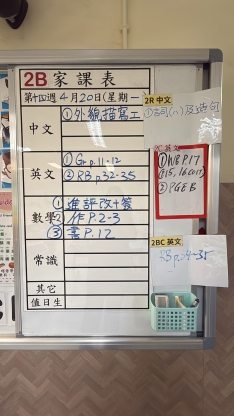 2B 家課表
第十四週 4月20日(星期一)
中文
①外貌描寫工
英文
①Gr p.11-12
②RB p.32-35
數學
①進評改+簽
②作P.2-3
③書P.12
常識
其它
值日生
2R 中文
①詞(八)及造句
英文
①WB P.17
②PGEB
2BC 英文